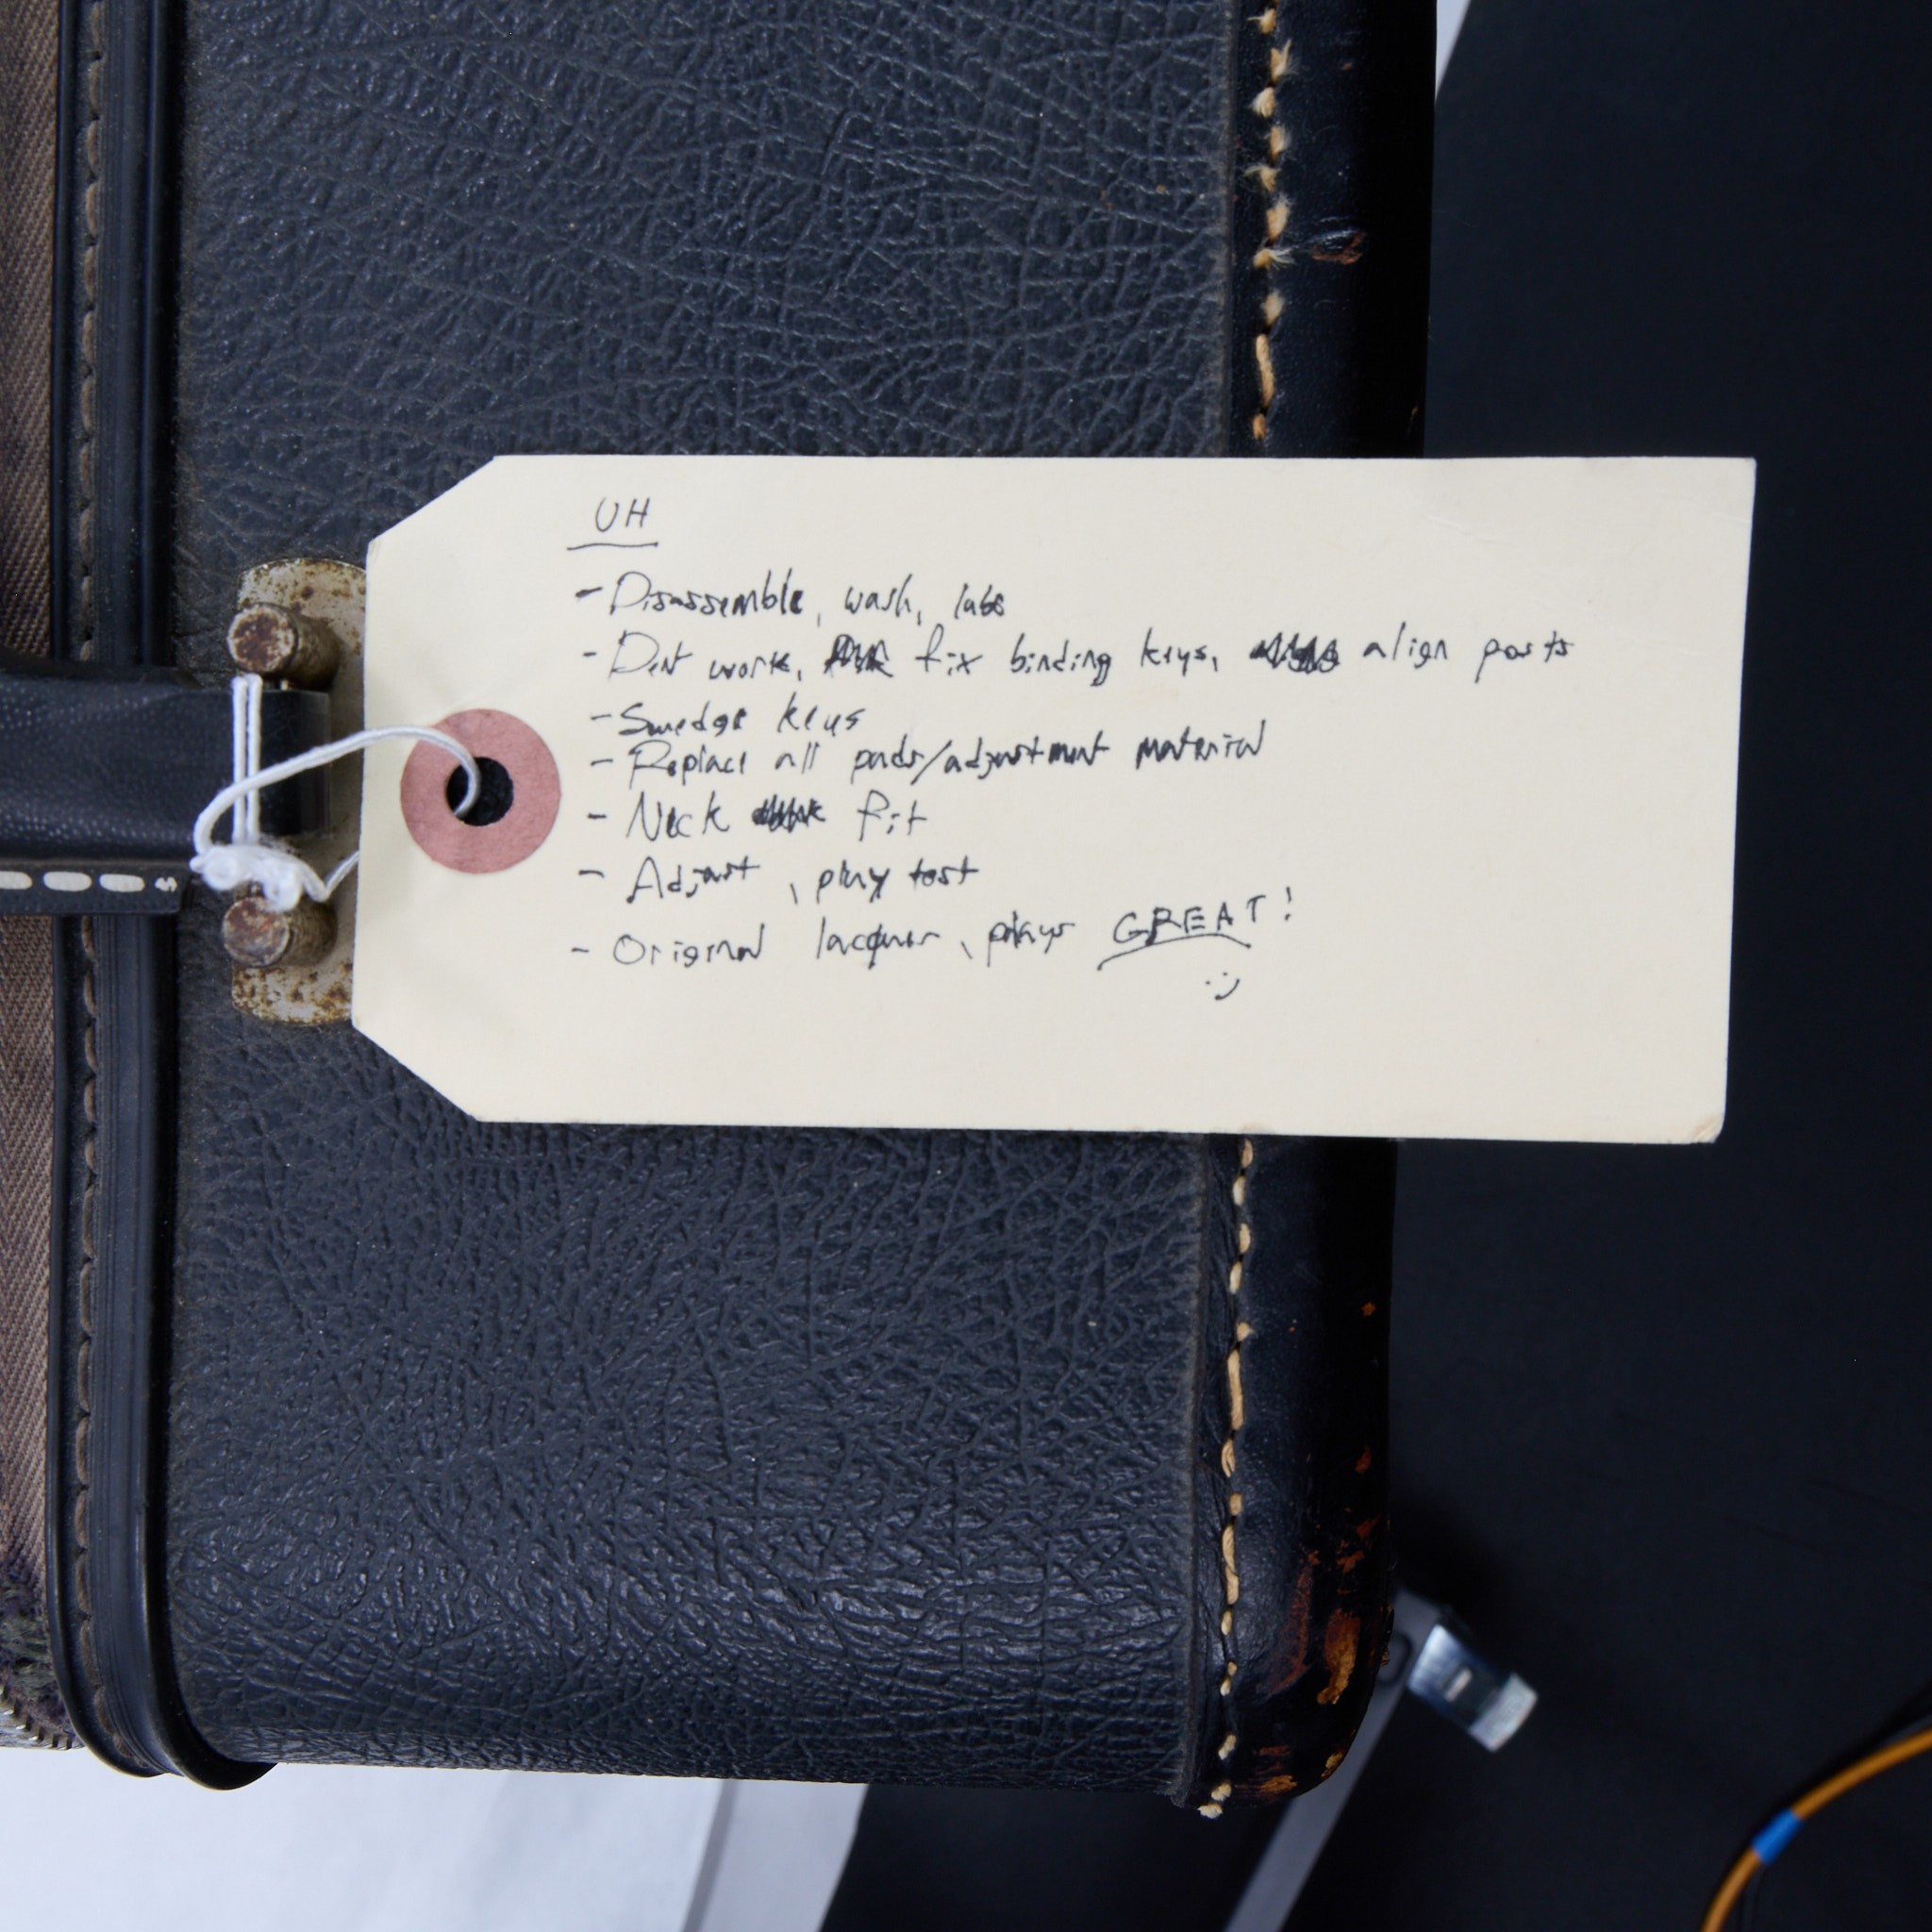 UH
- Disassemble, wash, labs
- Dent work, fix binding keys, align posts
- Swedge keys
- Replace all pads/adjustment material
- Neck fit
- Adjust, play test
- Original lacquer, plays GREAT!
:)